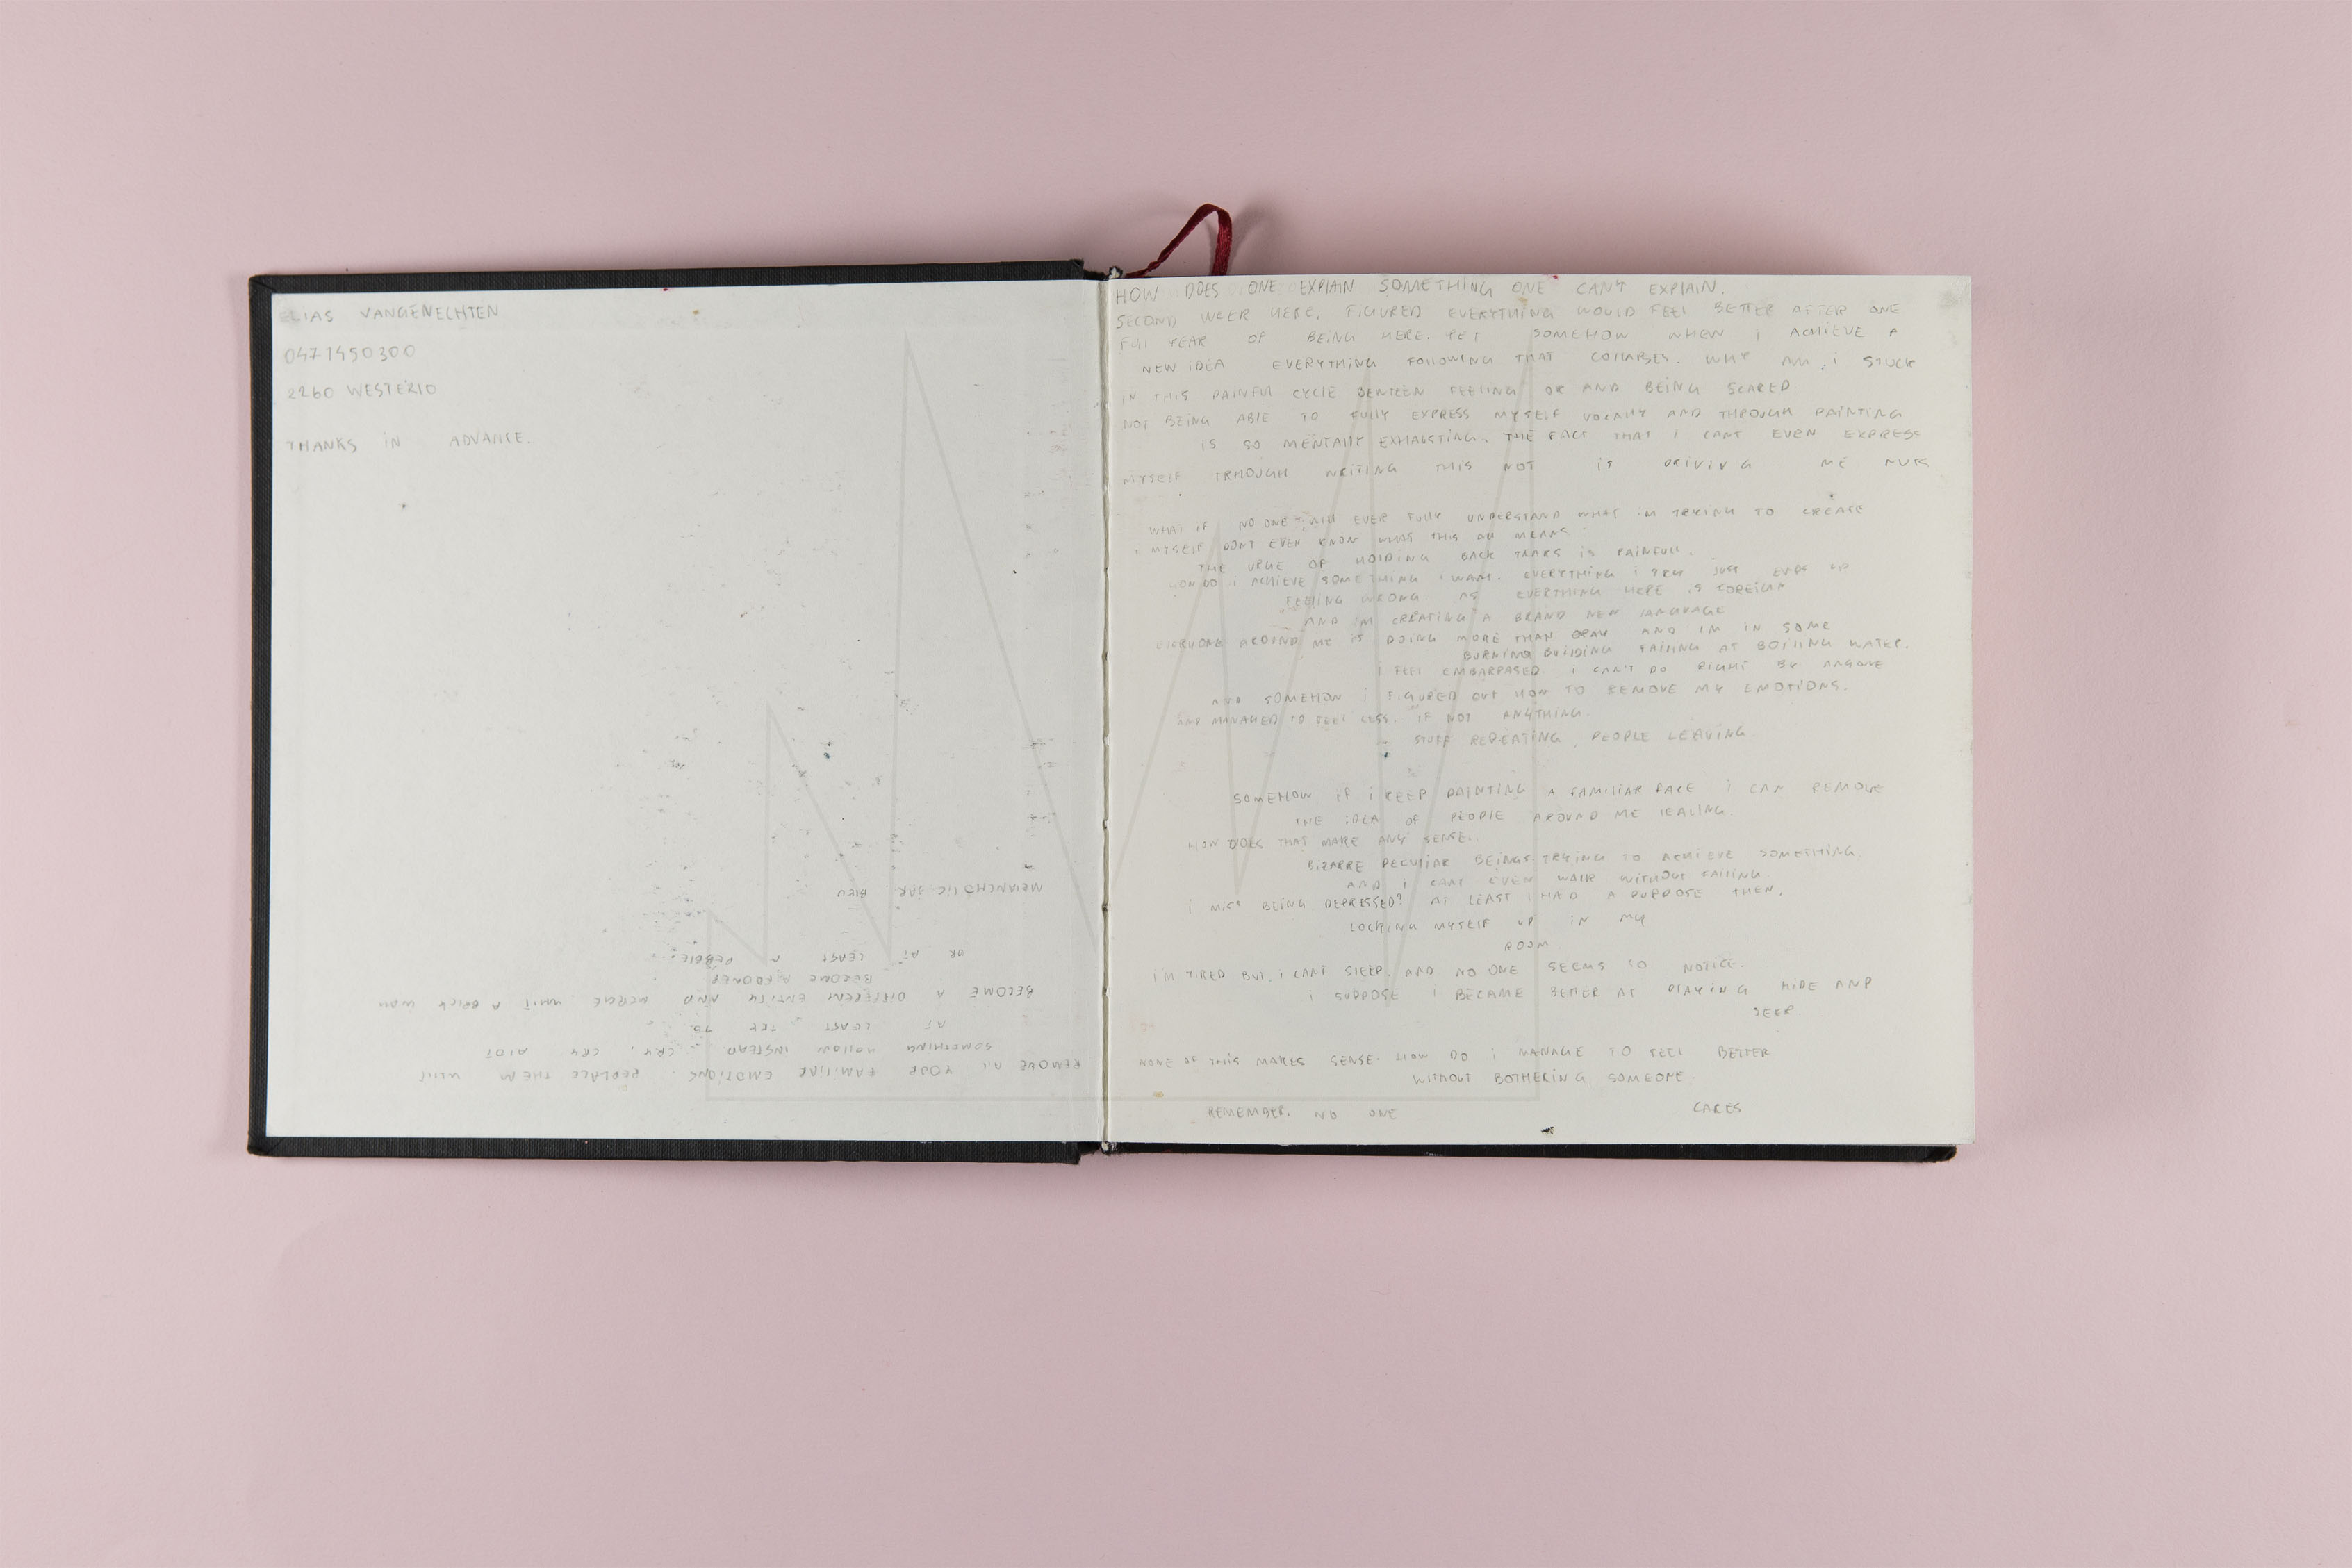 ELIAS VANGENECHTEN
0471450300
2260 WESTERLO
THANKS IN ADVANCE.
MELANCHOLIC BAR BLEU
OR AT LEAST A PEBBLE.
BECOME A
BECOME A DIFFERENT ENTITY AND MERGE WHIT A BRICK WALL
AT LEAST TRY TO
SOMETHING HOLLOW INSTEAD. CRY, CRY ALOT
REMOVE ALL YOUR FAMILIAR EMOTIONS REPLACE THEM WHIT
HOW DOES ONE EXPLAIN SOMETHING ONE CAN'T EXPLAIN.
SECOND WEEK HERE. FIGURED EVERYTHING WOULD FEEL BETTER AFTER ONE
FULL YEAR OF BEING HERE. YET SOMEHOW WHEN I ACHIEVE A
NEW IDEA EVERYTHING FOLLOWING THAT COLLAPSES. WHY AM I STUCK
IN THIS PAINFUL CYCLE BENTEEN FEELING OK AND BEING SCARED
NOT BEING ABLE TO FULLY EXPRESS MYSELF VOCALLY AND THROUGH PAINTING
IS SO MENTALLY EXHAUSTING. THE FACT THAT I CANT EVEN EXPRESS
MYSELF TRHOUGH WRITING THIS NOT IS DRIVING ME NUTS
WHAT IF NO ONE WILL EVER FULLY UNDERSTAND WHAT IM TRYING TO CREATE
I MYSELF DONT EVEN KNOW WHAT THIS ALL MEANS
THE URGE OF HOLDING BACK TEARS IS PAINFULL.
HOW DO I ACHIEVE SOMETHING I WANT. EVERYTHING I TRY JUST ENDS UP
FEELING WRONG AS EVERTHING HERE IS FOREIGN
AND I'M CREATING A BRAND NEW LANGUAGE
EVERYONE AROUND ME IS DOING MORE THAN OKAY AND IM IN SOME
BURNING BUILDING FAILING AT BOILING WATER.
I FEEL EMBARRASED. I CAN'T DO RIGHT BY ANYONE
AND SOMEHOW I FIGURED OUT HOW TO REMOVE MY EMOTIONS.
AND MANAGED TO FEEL LESS. IF NOT ANYTHING.
STUFF REPEATING, PEOPLE LEAVING
SOMEHOW IF I KEEP PAINTING A FAMILIAR FACE I CAN REMOVE
THE IDEA OF PEOPLE AROUND ME LEAVING.
HOW DOES THAT MAKE ANY SENSE.
BIZARRE PECULIAR BEINGS TRYING TO ACHIEVE SOMETHING
AND I CANT EVEN WALK WITHOUT FALLING.
I MISS BEING DEPRESSED? AT LEAST I HAD A PURPOSE THEN.
LOCKING MYSELF UP IN MY
ROOM
I'M TIRED BUT I CANT SLEEP. AND NO ONE SEEMS TO NOTICE.
I SUPPOSE I BECAME BETTER AT PLAYING HIDE AND
SEEK
NONE OF THIS MAKES SENSE. HOW DO I MANAGE TO FEEL BETTER
WITHOUT BOTHERING SOMEONE.
REMEMBER, NO ONE CARES